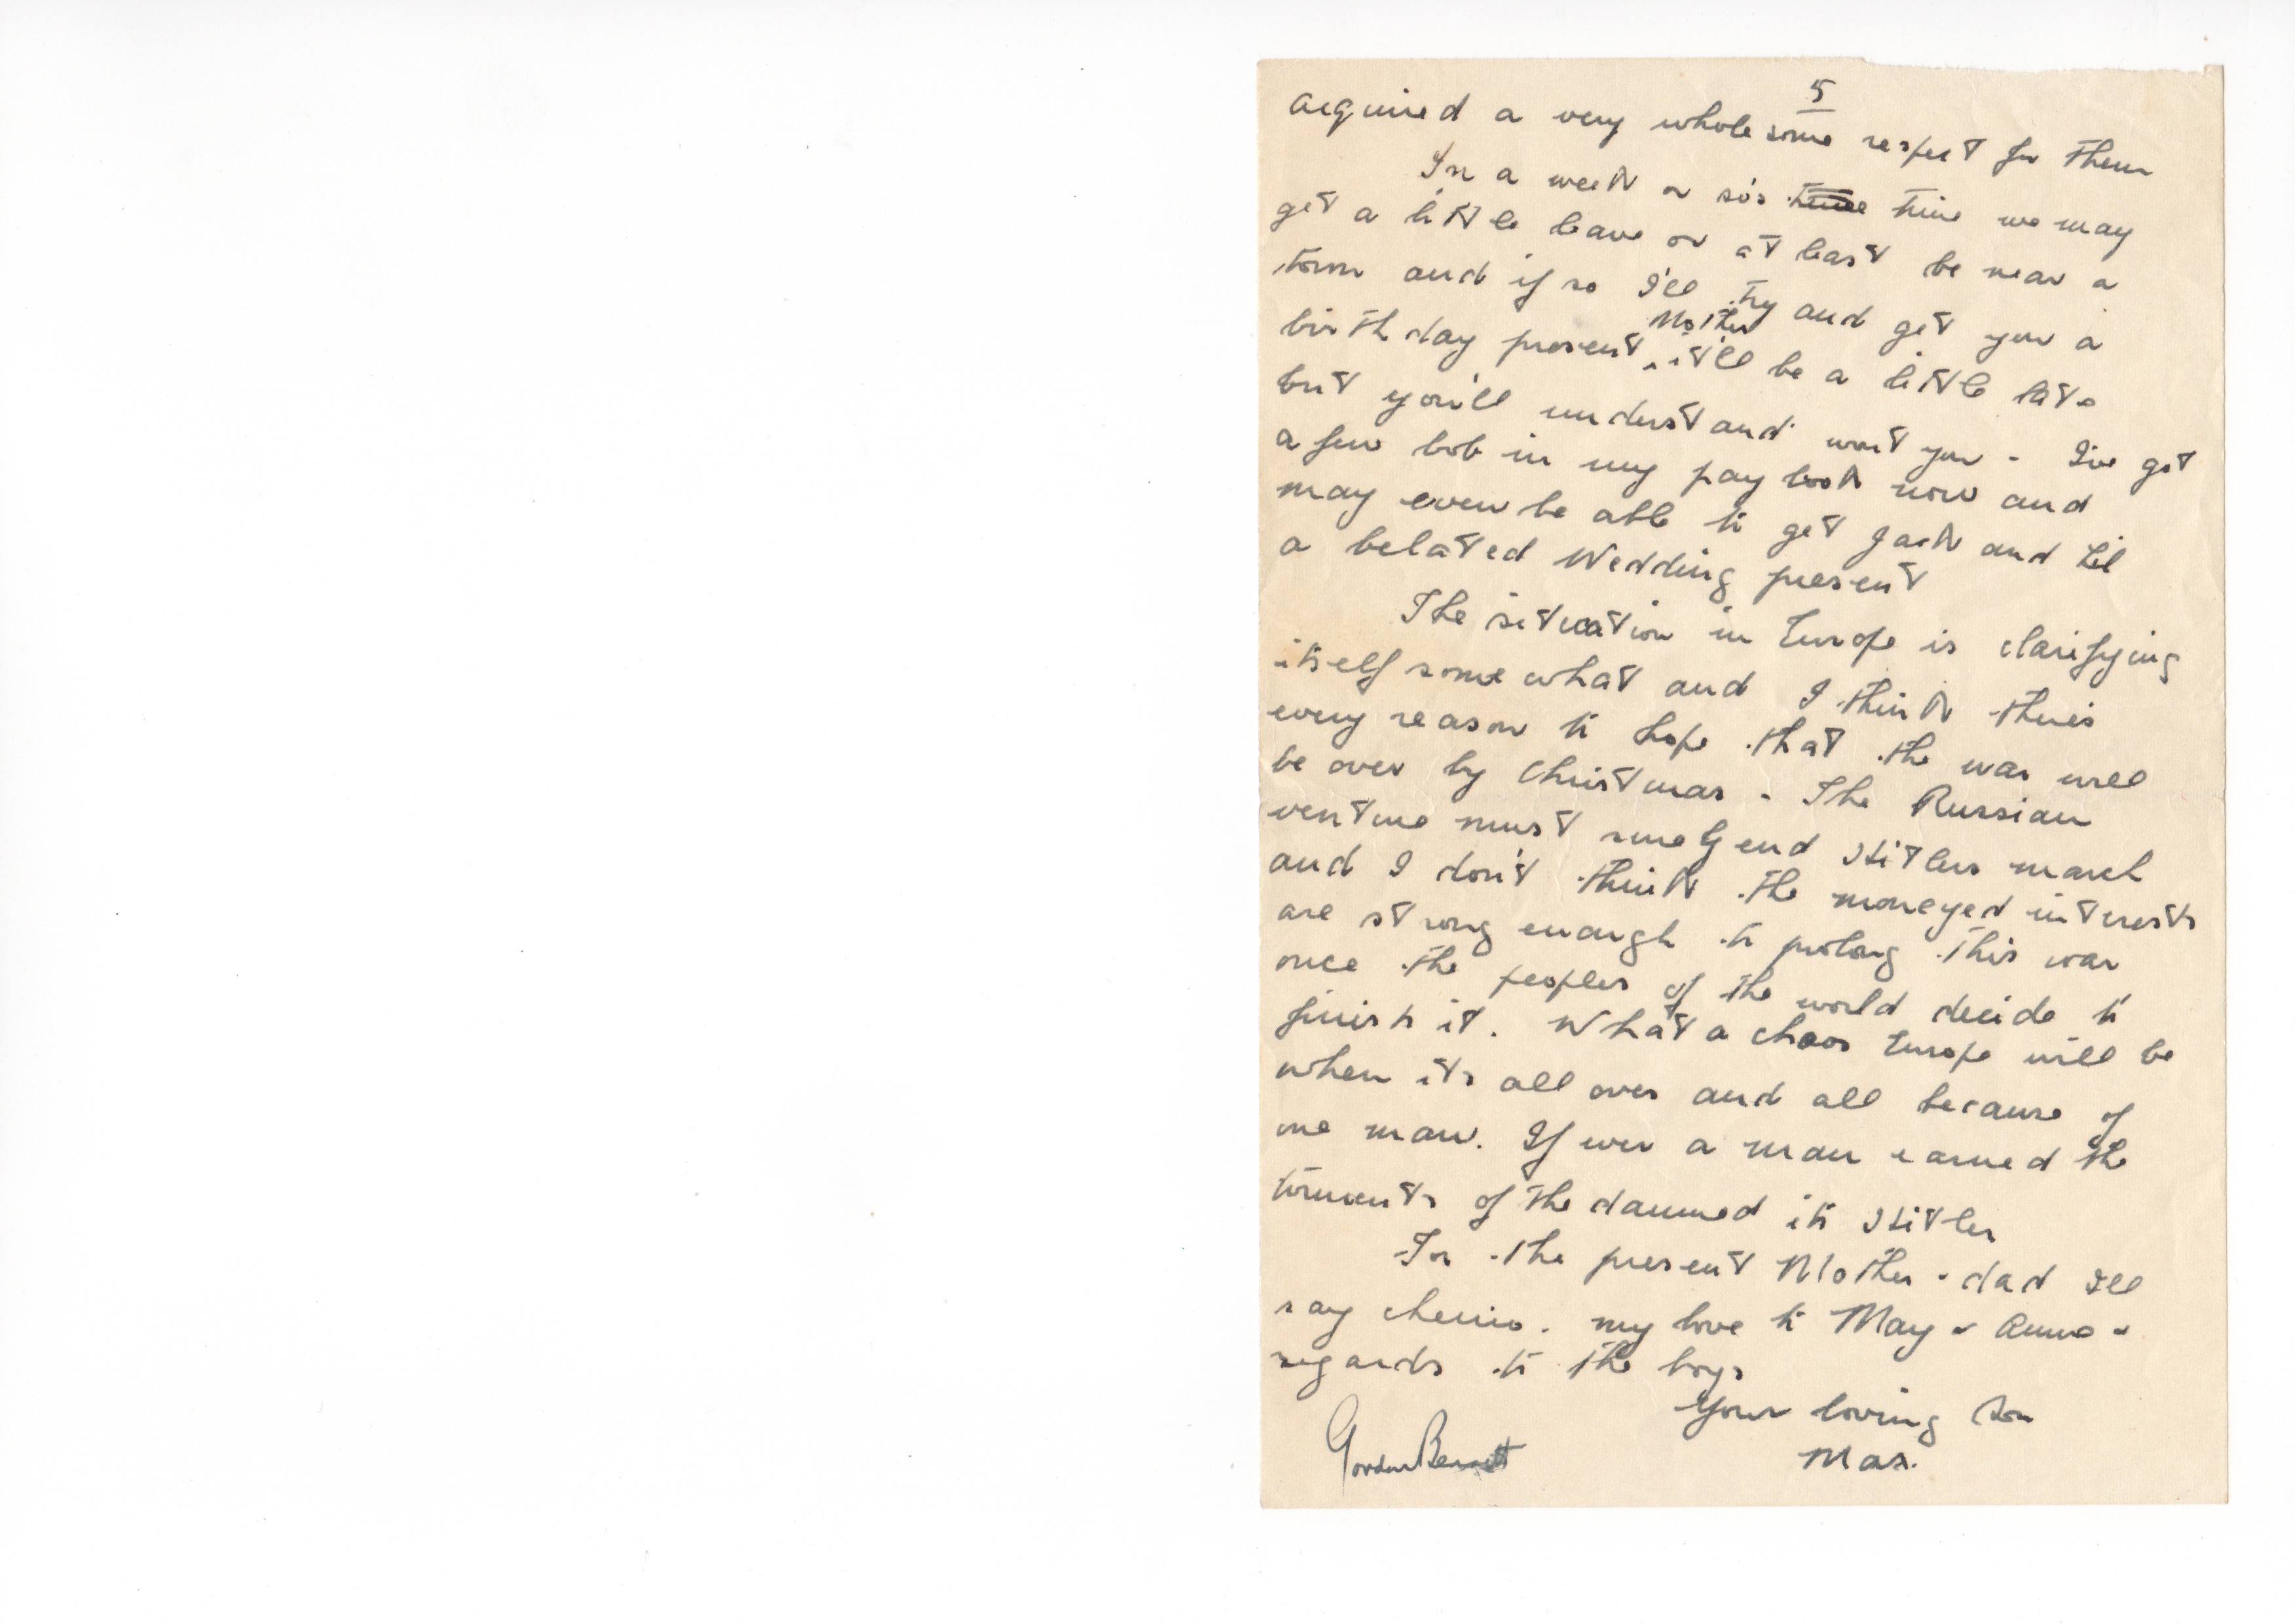 5
acquired a very wholesome respect for them
In a week or so's time time we may
get a little leave or at least be near a
town and if so I'll try and get you a
birthday present Mother, it'll be a little late
but you'll understand won't you - I've got
a few bob in my pay book now and
may even be able to get Jack and Lil
a belated Wedding present
The situation in Europe is clarifying
itself somewhat and I think there's
every reason to hope that the war will
be over by Christmas - The Russian
venture must surely end Hitlers march
and I don't think the moneyed interests
are strong enough to prolong this war
once the peoples of the world decide to
finish it. What a chaos Europe will be
when its all over and all because of
one man. If ever a man earned the
torments of the damned its Hitler
For the present Mother - dad I'll
say cheerio. my love to May - Anne -
regards to the boys
Your loving Son
Max.
Gordon Bennett